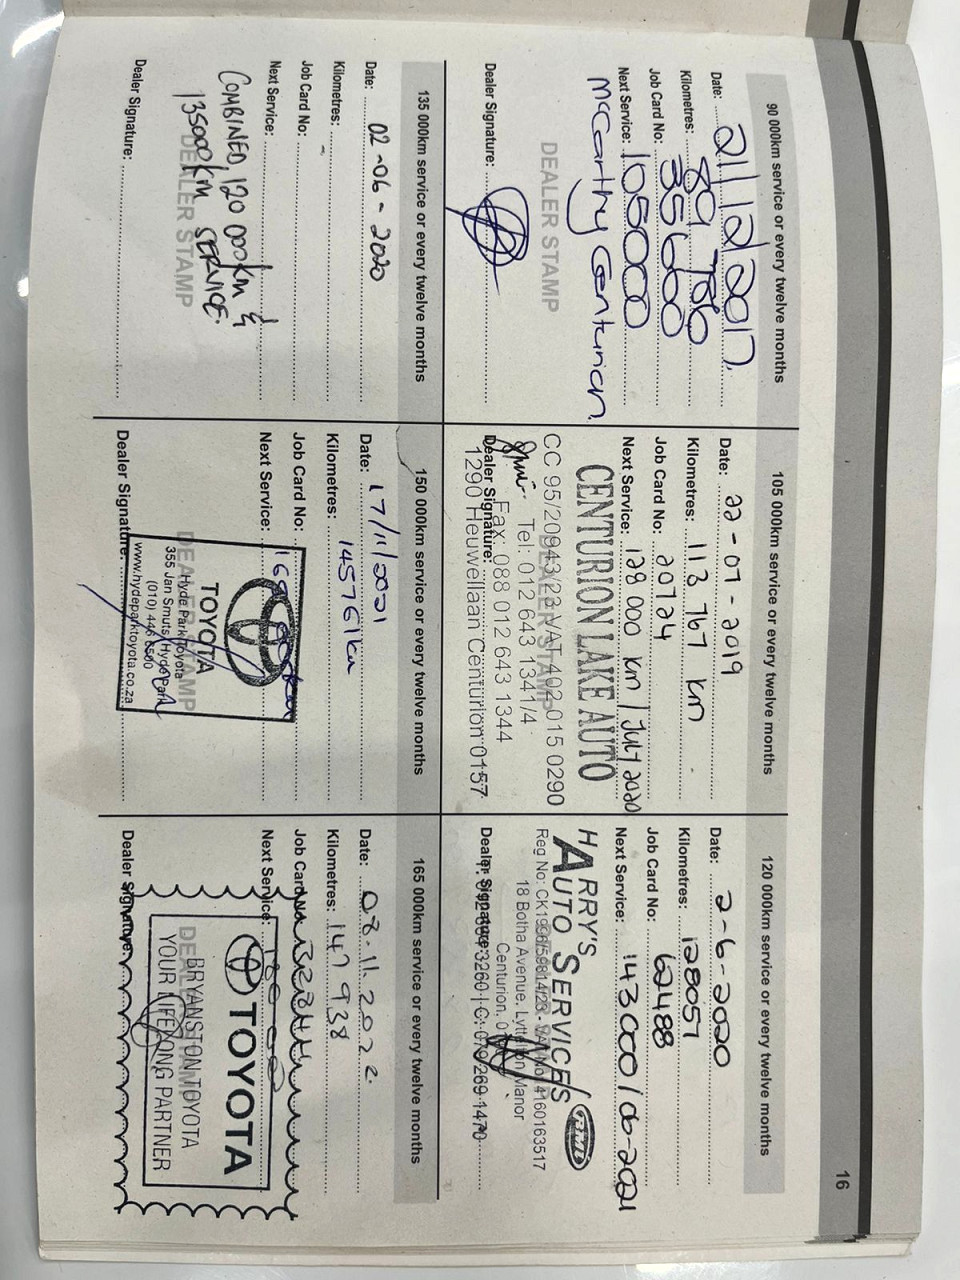 16
90 000km service or every twelve months
Date: 21/12/2017.
Kilometres: 89 786
Job Card No: 35660
Next Service: 105000
McCarthy Centurion.
DEALER STAMP
Dealer Signature:
105 000km service or every twelve months
Date: 22-07-2019
Kilometres: 113 767 km
Job Card No: 20724
Next Service: 128 000 km / July 2020
CENTURION LAKE AUTO
DEALER STAMP
CC 95/20943/23 VAT 402 015 0290
Tel: 012 643 1341/4
Fax: 088 012 643 1344
Dealer Signature:
1290 Heuwellaan Centurion 0157
120 000km service or every twelve months
Date: 2-6-2020
Kilometres: 128051
Job Card No: 62488
Next Service: 143000/06-2021
HARRY'S
AUTO SERVICES
RMI
18 Botha Avenue, Lyttelton Manor
Centurion,
Dealer Signature:
135 000km service or every twelve months
Date: 02-06-2020
Kilometres:
Job Card No:
Next Service:
COMBINED, 120 000km &
135000km SERVICE.
DEALER STAMP
Dealer Signature:
150 000km service or every twelve months
Date: 17/11/2021
Kilometres: 145761km
Job Card No:
Next Service:
TOYOTA
DEALER STAMP
Hyde Park Toyota
355 Jan Smuts Hyde Park
(010) 446 6500
www.hydeparktoyota.co.za
Dealer Signature:
165 000km service or every twelve months
Date: 08.11.2022.
Kilometres: 147 938
Job Card No:
Next Service:
TOYOTA
BRYANSTON TOYOTA
YOUR LIFELONG PARTNER
Dealer Signature: